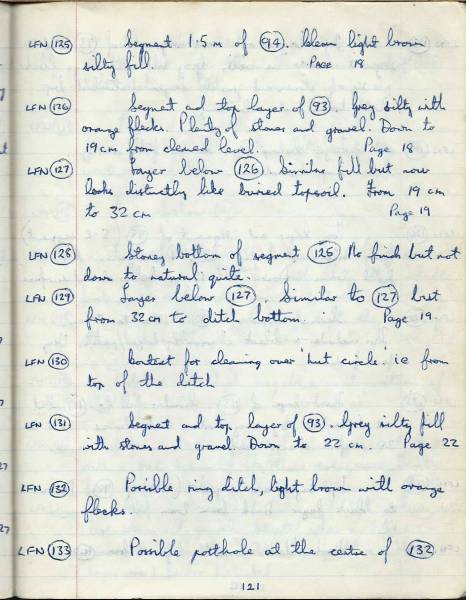 LFN (125) Segment 1.5 m of (94). Clean light brown
silty fill. PAGE 18
LFN (126) Segment and top layer of (93). Grey silty with
orange flecks. Plenty of stones and gravel. Down to
19cm from cleaned level. Page 18
LFN (127) Layer below (126). Similar fill but now
looks distinctly like buried topsoil. From 19 cm
to 32 cm Page 19
LFN (128) Stoney bottom of segment (125) No finds but not
down to natural quite.
LFN (129) Layer below (127). Similar to (127) but
from 32cm to ditch bottom. Page 19.
LFN (130) Context for cleaning over 'hut circle' ie from
top of the ditch
LFN (131) Segment and top layer of (93). Grey silty fill
with stones and gravel. Down to 22 cm. Page 22
LFN (132) Possible ring ditch, light brown with orange
flecks.
LFN (133) Possible posthole at the centre of (132)
121